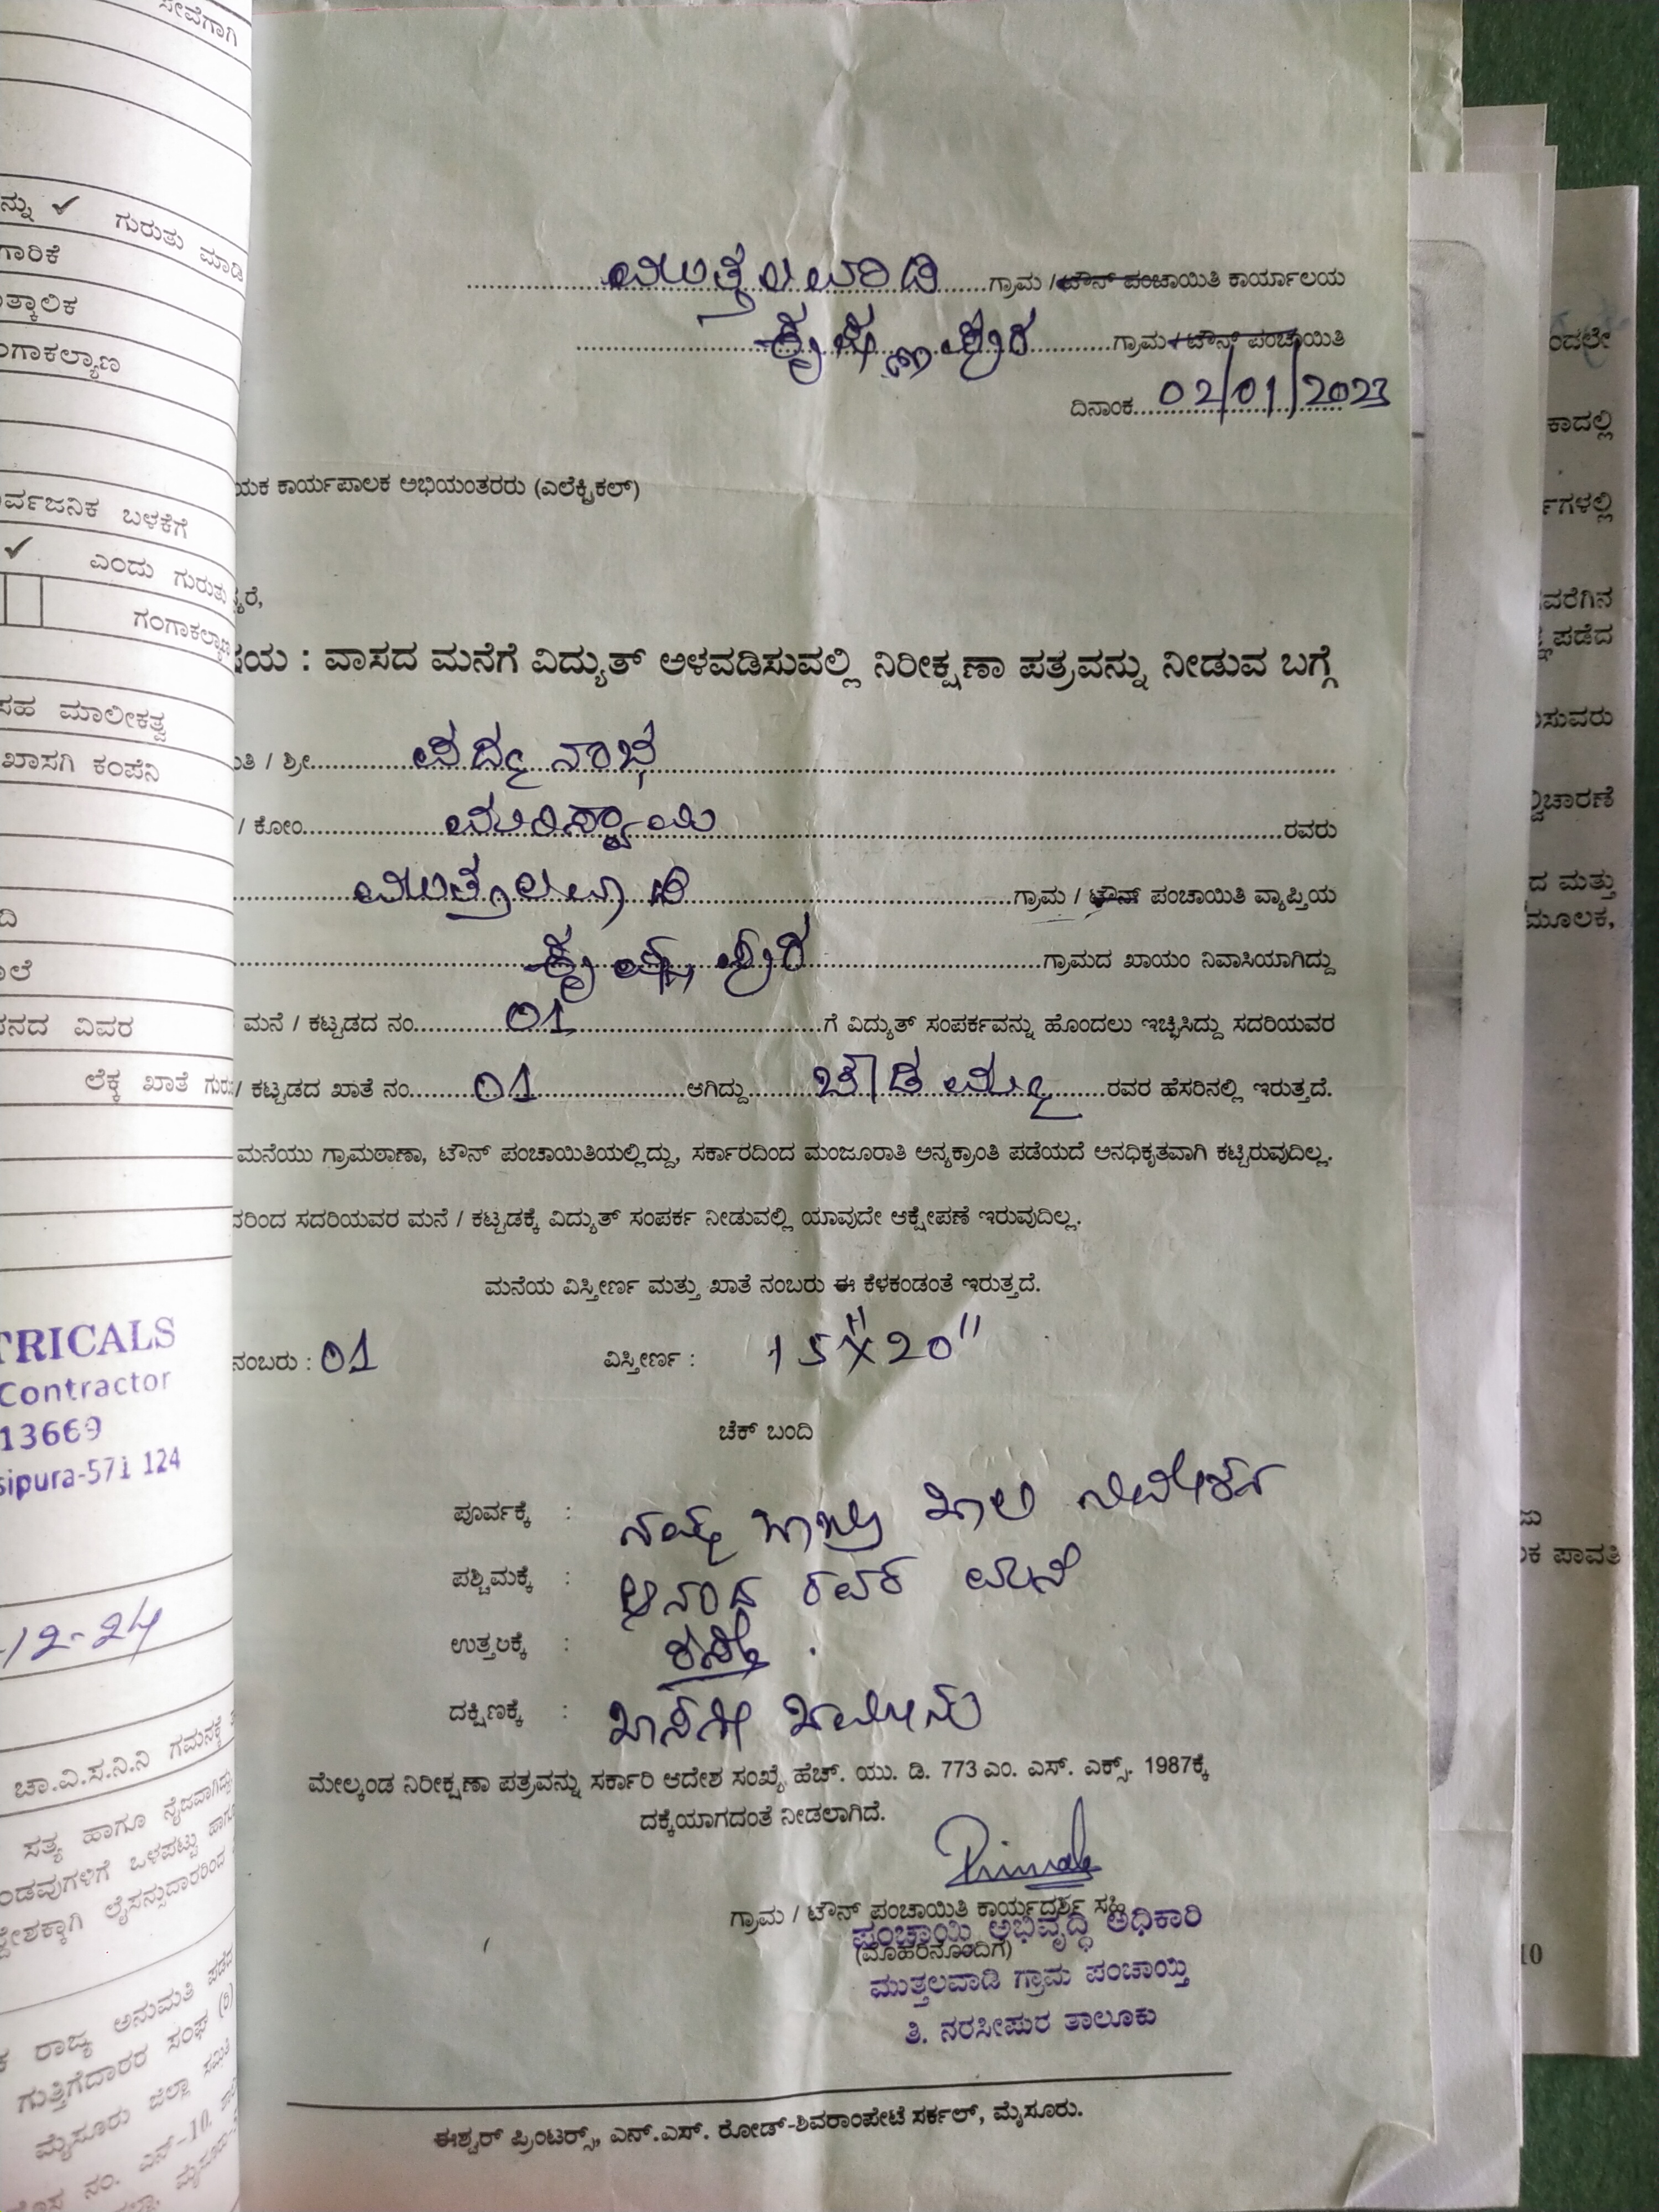 ಸೇವೆಗಾಗಿ
ನ್ನು ✓ ಗುರುತು ಮಾಡಿ
ಗಾರಿಕೆ
ತ್ಕಾಲಿಕ
ಂಗಾಕಲ್ಯಾಣ
ರ್ವಜನಿಕ ಬಳಕೆಗೆ
✓ ಎಂದು ಗುರುತು
ಗಂಗಾಕಲ್ಯಾಣ
ಸಹ ಮಾಲೀಕತ್ವ
ಖಾಸಗಿ ಕಂಪೆನಿ
ದಿ
ಾಲೆ
ನದ ವಿವರ
ಲೆಕ್ಕ ಖಾತೆ ಗುರು
TRICALS
Contractor
13669
sipura-571 124
-12-24
ಚಾ.ವಿ.ಸ.ನಿ.ನಿ ಗಮನಕ್ಕೆ
ಸತ್ಯ ಹಾಗೂ ನೈಜವಾಗಿದ್ದು
ಂಡವುಗಳಿಗೆ ಒಳಪಟ್ಟು ಹಾಗೂ
ದ್ದೇಶಕ್ಕಾಗಿ ಲೈಸನ್ಸುದಾರರಿಂದ
ರಾಜ್ಯ ಅನುಮತಿ ಪಡೆದ
ಗುತ್ತಿಗೆದಾರರ ಸಂಘ (ರಿ)
ಮೈಸೂರು ಜಿಲ್ಲಾ ಸಮಿತಿ
ನಂ. ಎನ್-10,
ಮುತ್ತಲವಾಡಿ ಗ್ರಾಮ / ಟೌನ್ ಪಂಚಾಯಿತಿ ಕಾರ್ಯಾಲಯ
ಕೃಷ್ಣಾಪುರ ಗ್ರಾಮ / ಟೌನ್ ಪಂಚಾಯಿತಿ
ದಿನಾಂಕ 02/01/2023
ಯಕ ಕಾರ್ಯಪಾಲಕ ಅಭಿಯಂತರರು (ಎಲೆಕ್ಟ್ರಿಕಲ್)
್ಯರೆ,
ಷಯ : ವಾಸದ ಮನೆಗೆ ವಿದ್ಯುತ್ ಅಳವಡಿಸುವಲ್ಲಿ ನಿರೀಕ್ಷಣಾ ಪತ್ರವನ್ನು ನೀಡುವ ಬಗ್ಗೆ
ತಿ / ಶ್ರೀ ಪದ್ಮನಾಭ
/ ಕೋಂ ಮರಿಸ್ವಾಮಿ ರವರು
ಮುತ್ತಲವಾಡಿ ಗ್ರಾಮ / ಟೌನ್ ಪಂಚಾಯಿತಿ ವ್ಯಾಪ್ತಿಯ
ಕೃಷ್ಣಪುರ ಗ್ರಾಮದ ಖಾಯಂ ನಿವಾಸಿಯಾಗಿದ್ದು
ಮನೆ / ಕಟ್ಟಡದ ನಂ. 01 ಗೆ ವಿದ್ಯುತ್ ಸಂಪರ್ಕವನ್ನು ಹೊಂದಲು ಇಚ್ಛಿಸಿದ್ದು ಸದರಿಯವರ
/ ಕಟ್ಟಡದ ಖಾತೆ ನಂ. 01 ಆಗಿದ್ದು ಚೌಡಮ್ಮ ರವರ ಹೆಸರಿನಲ್ಲಿ ಇರುತ್ತದೆ.
ಮನೆಯು ಗ್ರಾಮಠಾಣಾ, ಟೌನ್ ಪಂಚಾಯಿತಿಯಲ್ಲಿದ್ದು, ಸರ್ಕಾರದಿಂದ ಮಂಜೂರಾತಿ ಅನ್ಯಕ್ರಾಂತಿ ಪಡೆಯದೆ ಅನಧಿಕೃತವಾಗಿ ಕಟ್ಟಿರುವುದಿಲ್ಲ.
ದರಿಂದ ಸದರಿಯವರ ಮನೆ / ಕಟ್ಟಡಕ್ಕೆ ವಿದ್ಯುತ್ ಸಂಪರ್ಕ ನೀಡುವಲ್ಲಿ ಯಾವುದೇ ಆಕ್ಷೇಪಣೆ ಇರುವುದಿಲ್ಲ.
ಮನೆಯ ವಿಸ್ತೀರ್ಣ ಮತ್ತು ಖಾತೆ ನಂಬರು ಈ ಕೆಳಕಂಡಂತೆ ಇರುತ್ತದೆ.
ನಂಬರು : 01 ವಿಸ್ತೀರ್ಣ : 15"X20"
ಚೆಕ್ ಬಂದಿ
ಪೂರ್ವಕ್ಕೆ : ನಮ್ಮ ಬಾಬ್ತು ಖಾಲಿ ನಿವೇಶನ
ಪಶ್ಚಿಮಕ್ಕೆ : ಆನಂದ ರವರ ಮನೆ
ಉತ್ತರಕ್ಕೆ : ರಸ್ತೆ .
ದಕ್ಷಿಣಕ್ಕೆ : ಖಾಸಗೀ ಜಮೀನು
ಮೇಲ್ಕಂಡ ನಿರೀಕ್ಷಣಾ ಪತ್ರವನ್ನು ಸರ್ಕಾರಿ ಆದೇಶ ಸಂಖ್ಯೆ ಹೆಚ್. ಯು. ಡಿ. 773 ಎಂ. ಎಸ್. ಎಕ್ಸ್. 1987ಕ್ಕೆ
ದಕ್ಕೆಯಾಗದಂತೆ ನೀಡಲಾಗಿದೆ.
ಗ್ರಾಮ / ಟೌನ್ ಪಂಚಾಯಿತಿ ಕಾರ್ಯದರ್ಶಿ ಸಹಿ
ಪಂಚಾಯಿ ಅಭಿವೃದ್ಧಿ ಅಧಿಕಾರಿ
(ಮೊಹರಿನೊಂದಿಗೆ)
ಮುತ್ತಲವಾಡಿ ಗ್ರಾಮ ಪಂಚಾಯ್ತಿ
ತಿ. ನರಸೀಪುರ ತಾಲೂಕು
ಈಶ್ವರ್ ಪ್ರಿಂಟರ್ಸ್, ಎನ್.ಎಸ್. ರೋಡ್-ಶಿವರಾಂಪೇಟೆ ಸರ್ಕಲ್, ಮೈಸೂರು.
ಂದಲೇ
ಕಾದಲ್ಲಿ
ಗಳಲ್ಲಿ
ವರೆಗಿನ
ಪಡೆದ
ಸುವರು
ವಿಚಾರಣೆ
ದ ಮತ್ತು
ಮೂಲಕ,
ಕ ಪಾವತಿ
10